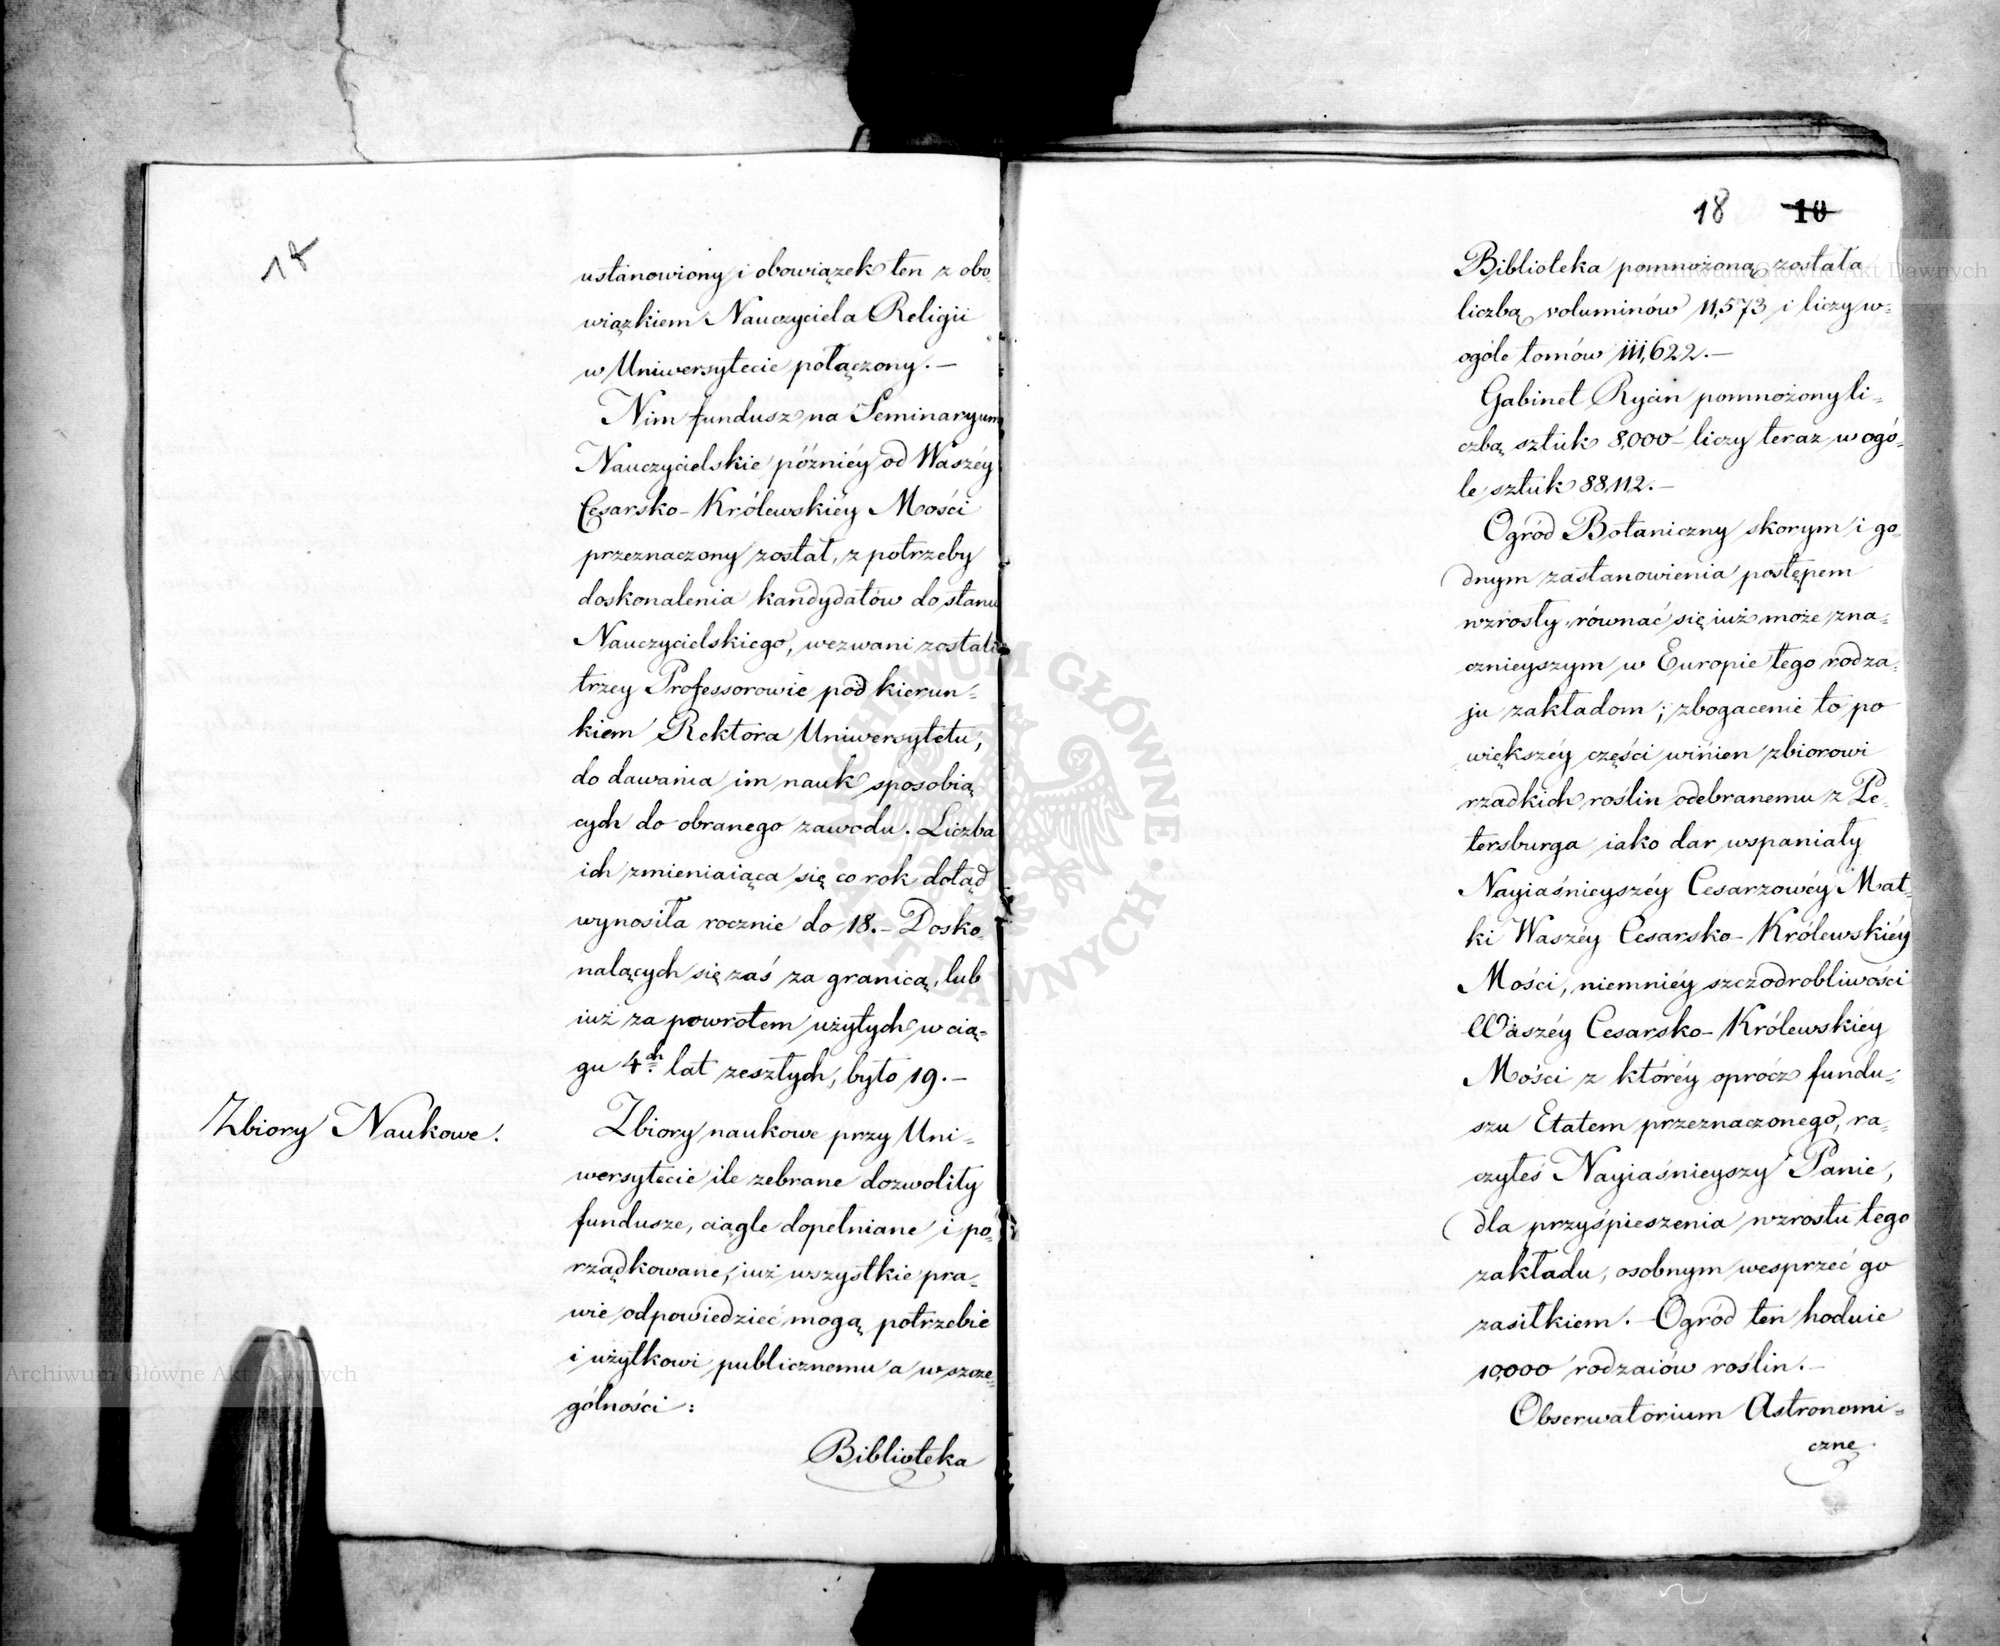 17
ustanowiony i obowiązek ten z obo-
wiązkiem Nauczyciela Religii
w Uniwersytecie połączony. —
Nim fundusz na Seminaryum
Nauczycielskie późniéy od Waszéy
Cesarsko-Królewskiéy Mości
przeznaczony został, z potrzeby
doskonalenia kandydatów do stanu
Nauczycielskiego, wezwani zostali
trzey Professorowie pod kierun-
kiem Rektora Uniwersytetu,
do dawania im nauk sposobią-
cych do obranego zawodu. Liczba
ich zmieniaiąca się co rok dotąd
wynosiła rocznie do 18. — Dosko-
nalących się zaś za granicą, lub
iuż za powrotem użytych w cią-
gu 4ch. lat zeszłych, było 19. —
Zbiory Naukowe.
Zbiory naukowe przy Uni-
wersytecie ile zebrane dozwoliły
fundusze, ciągle dopełniane i po-
rządkowane, iuż wszystkie pra-
wie odpowiedzieć mogą potrzebie
i użytkowi publicznemu a w szcze-
gólności:
Biblioteka
18 10
Biblioteka pomnożoną została
liczbą voluminów 11,573 i liczy w-
ogóle tomów 111,622. —
Gabinet Rycin pomnożony li-
czbą sztuk 8,000 liczy teraz w ogó-
le sztuk 88,112. —
Ogród Botaniczny skorym i go-
dnym zastanowienia postępem
wzrosły, równać się iuż może zna-
cznieyszym w Europie tego rodza-
ju zakładom; zbogacenie to po
większéy części winien zbiorowi
rzadkich roślin odebranemu z Pe-
tersburga iako dar wspaniały
Nayiaśnieyszéy Cesarzowéy Mat-
ki Waszéy Cesarsko-Królewskiéy
Mości, niemniéy szczodrobliwości
Waszéy Cesarsko-Królewskiéy
Mości z któréy oprócz fundu-
szu Etatem przeznaczonego, ra-
czyłeś Nayiaśnieyszy Panie,
dla przyśpieszenia wzrostu tego
zakładu, osobnym wesprzeć go
zasiłkiem. — Ogród ten hoduie
10,000 rodzaiów roślin. —
Obserwatorium Astronomi-
czne
Archiwum Główne Akt Dawnych
ARCHIWUM GŁÓWNE AKT DAWNYCH
Archiwum Główne Akt Dawnych